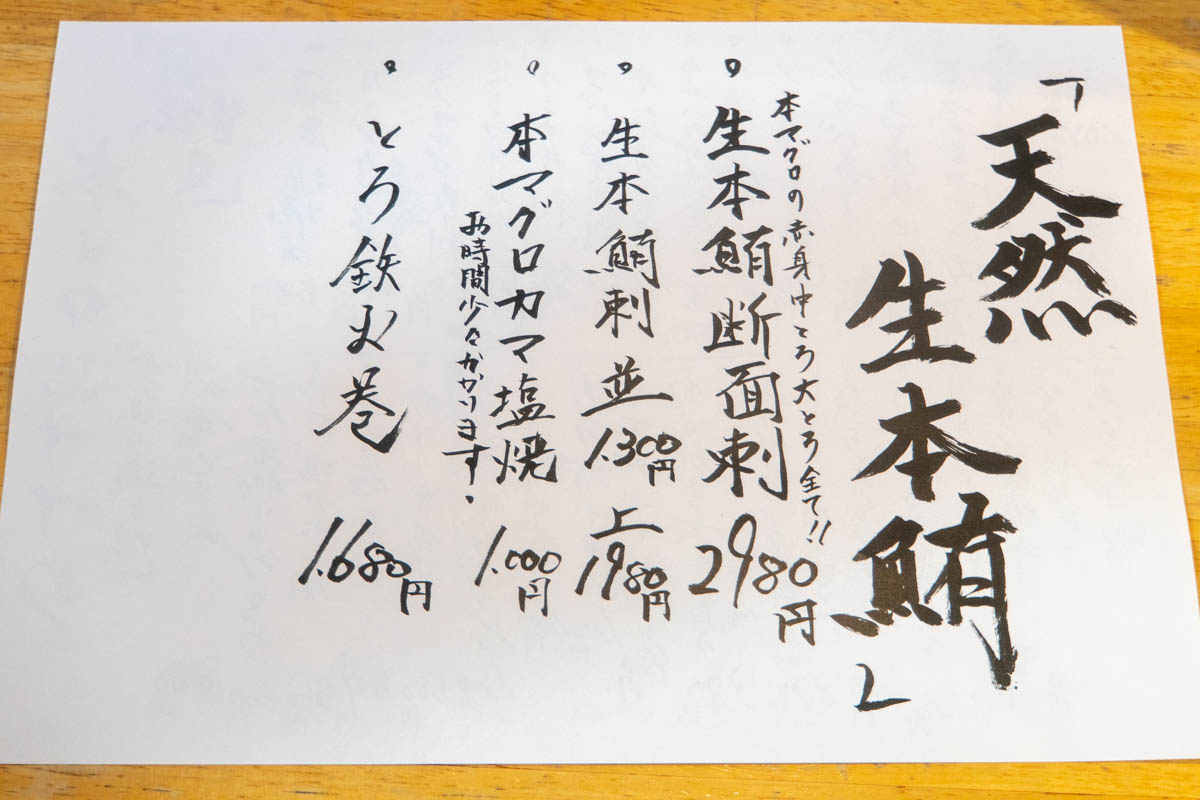 「天然
生本鮪」
本マグロの赤身中とろ大とろ全て!!
。生本鮪断面刺 2980円
。生本鮪刺 並 1.300円 上 1980円
。本マグロカマ塩焼 1.000円
お時間少々かかります。
。とろ鉄火巻 1.680円